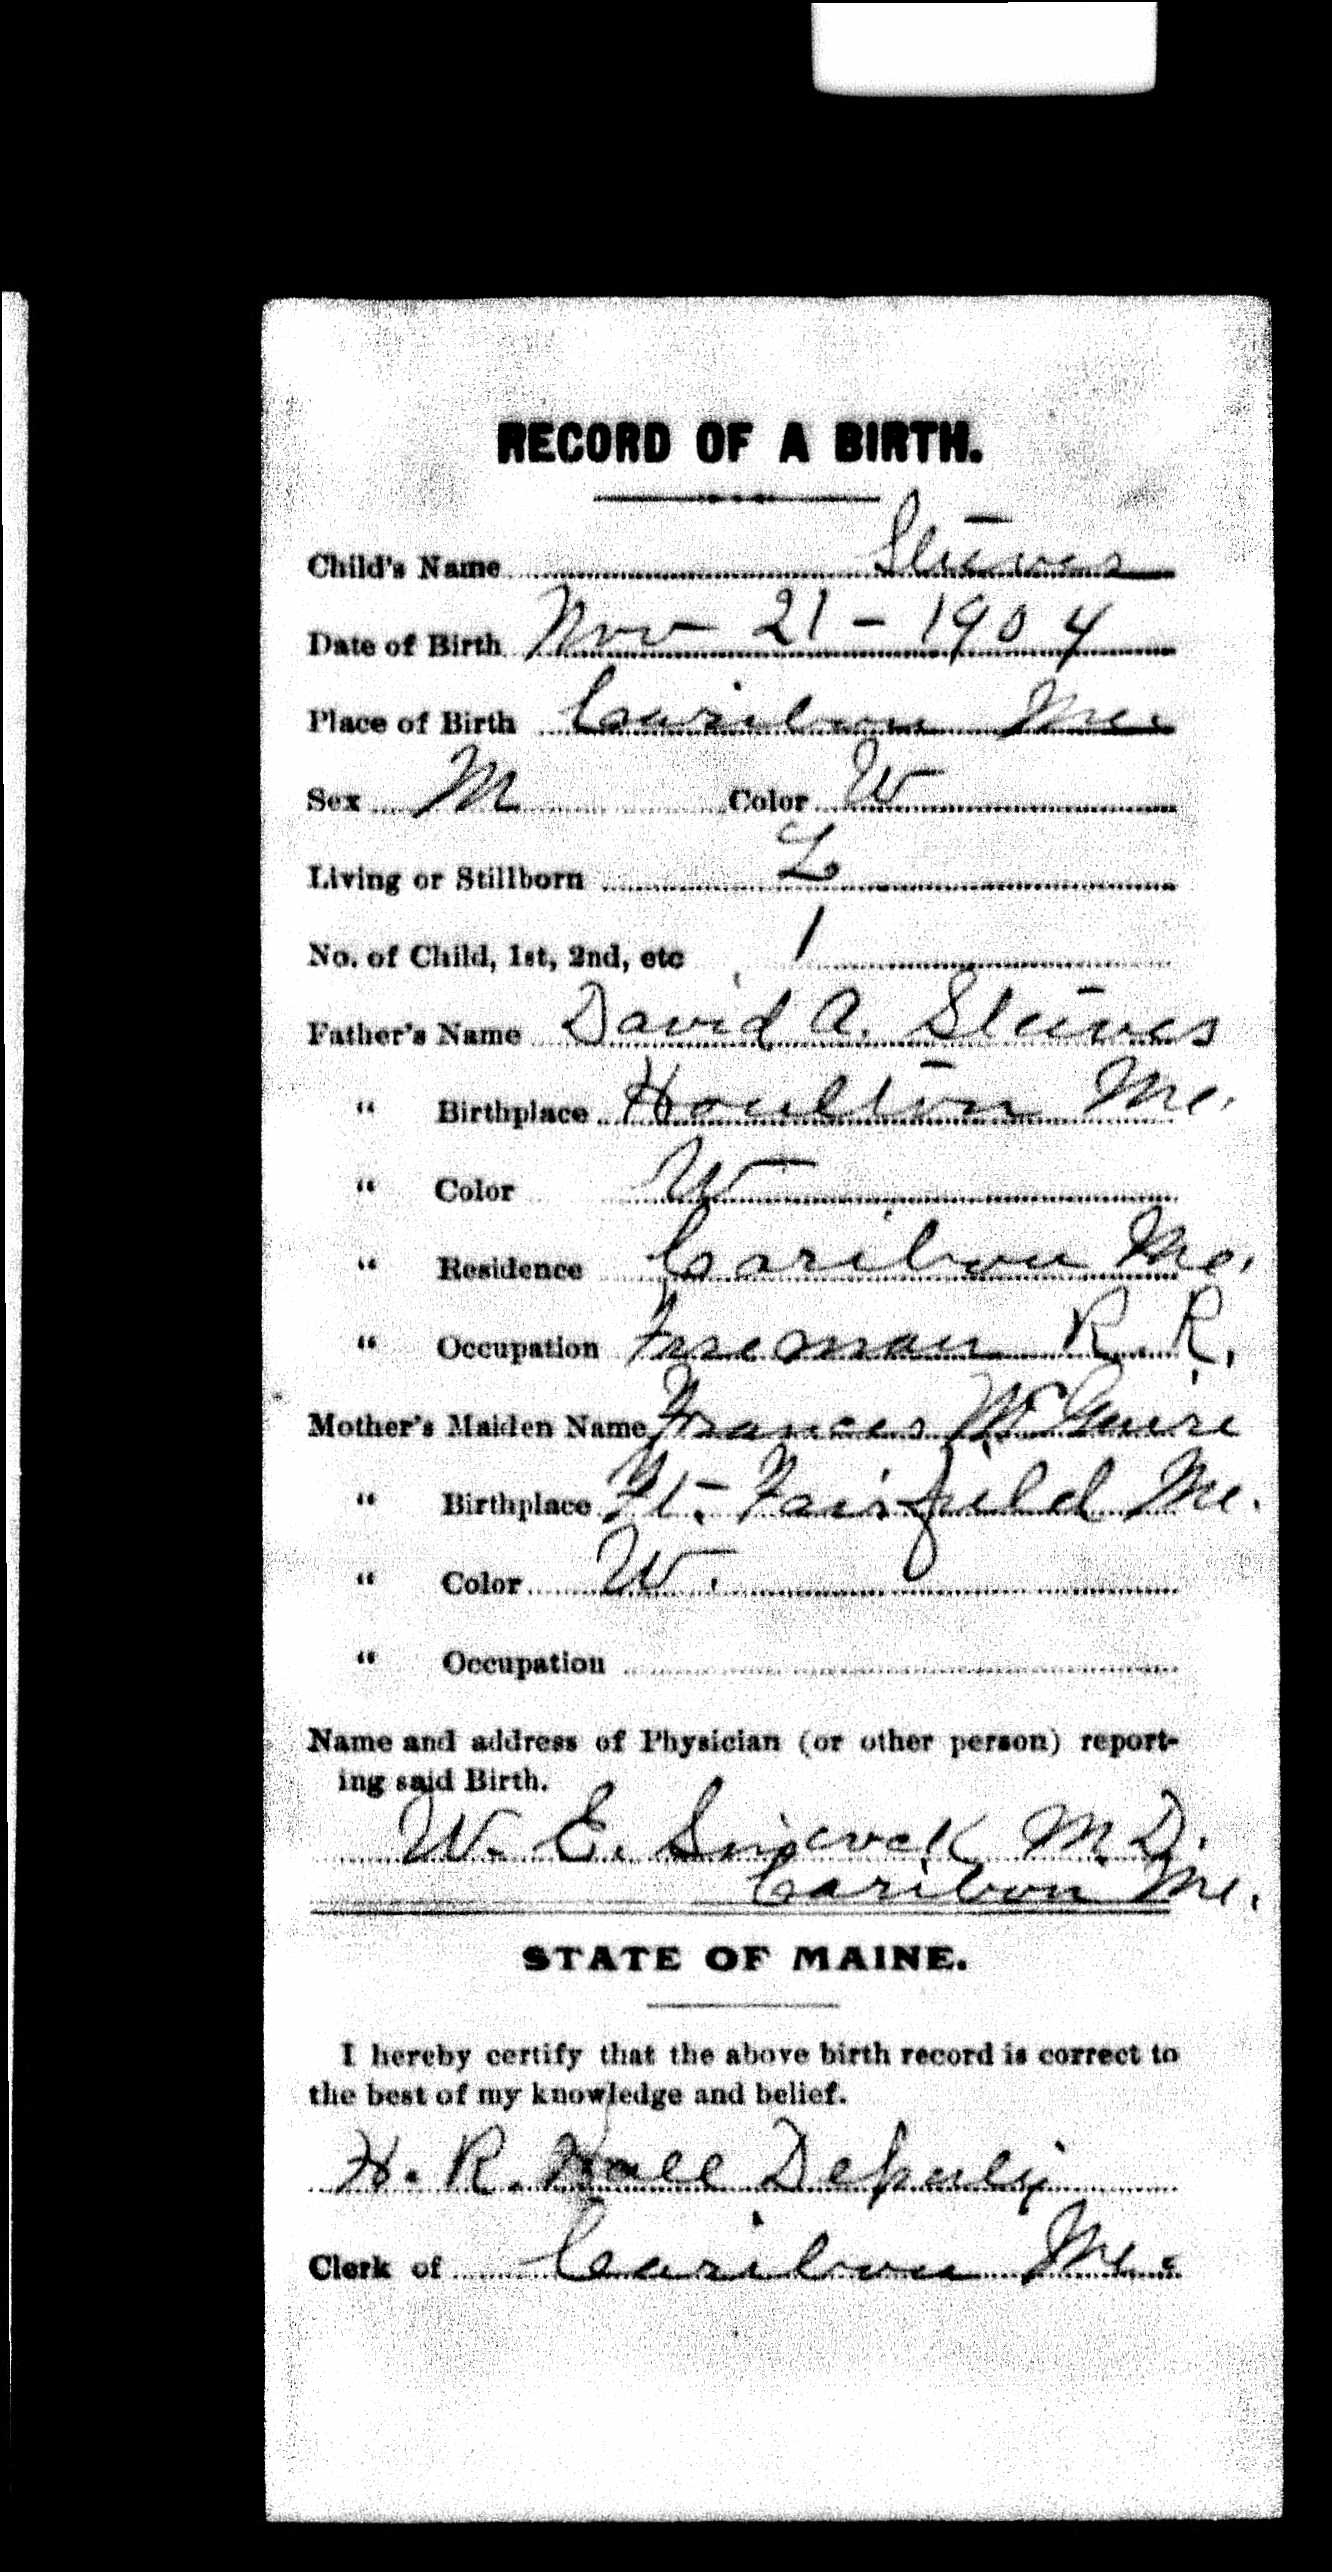 RECORD OF A BIRTH.
Child's Name Steeves
Date of Birth Nov 21 - 1904
Place of Birth Caribou Me.
Sex M Color W
Living or Stillborn L
No. of Child, 1st, 2nd, etc 1
Father's Name David A. Steeves
" Birthplace Houlton Me.
" Color W
" Residence Caribou Me.
" Occupation Fireman R. R.
Mother's Maiden Name Frances McGuire
" Birthplace Ft. Fairfield Me.
" Color W.
" Occupation
Name and address of Physician (or other person) report-
ing said Birth.
W. E. Sincock M.D.
Caribou Me.
STATE OF MAINE.
I hereby certify that the above birth record is correct to
the best of my knowledge and belief.
H. R. Hall Deputy
Clerk of Caribou Me.